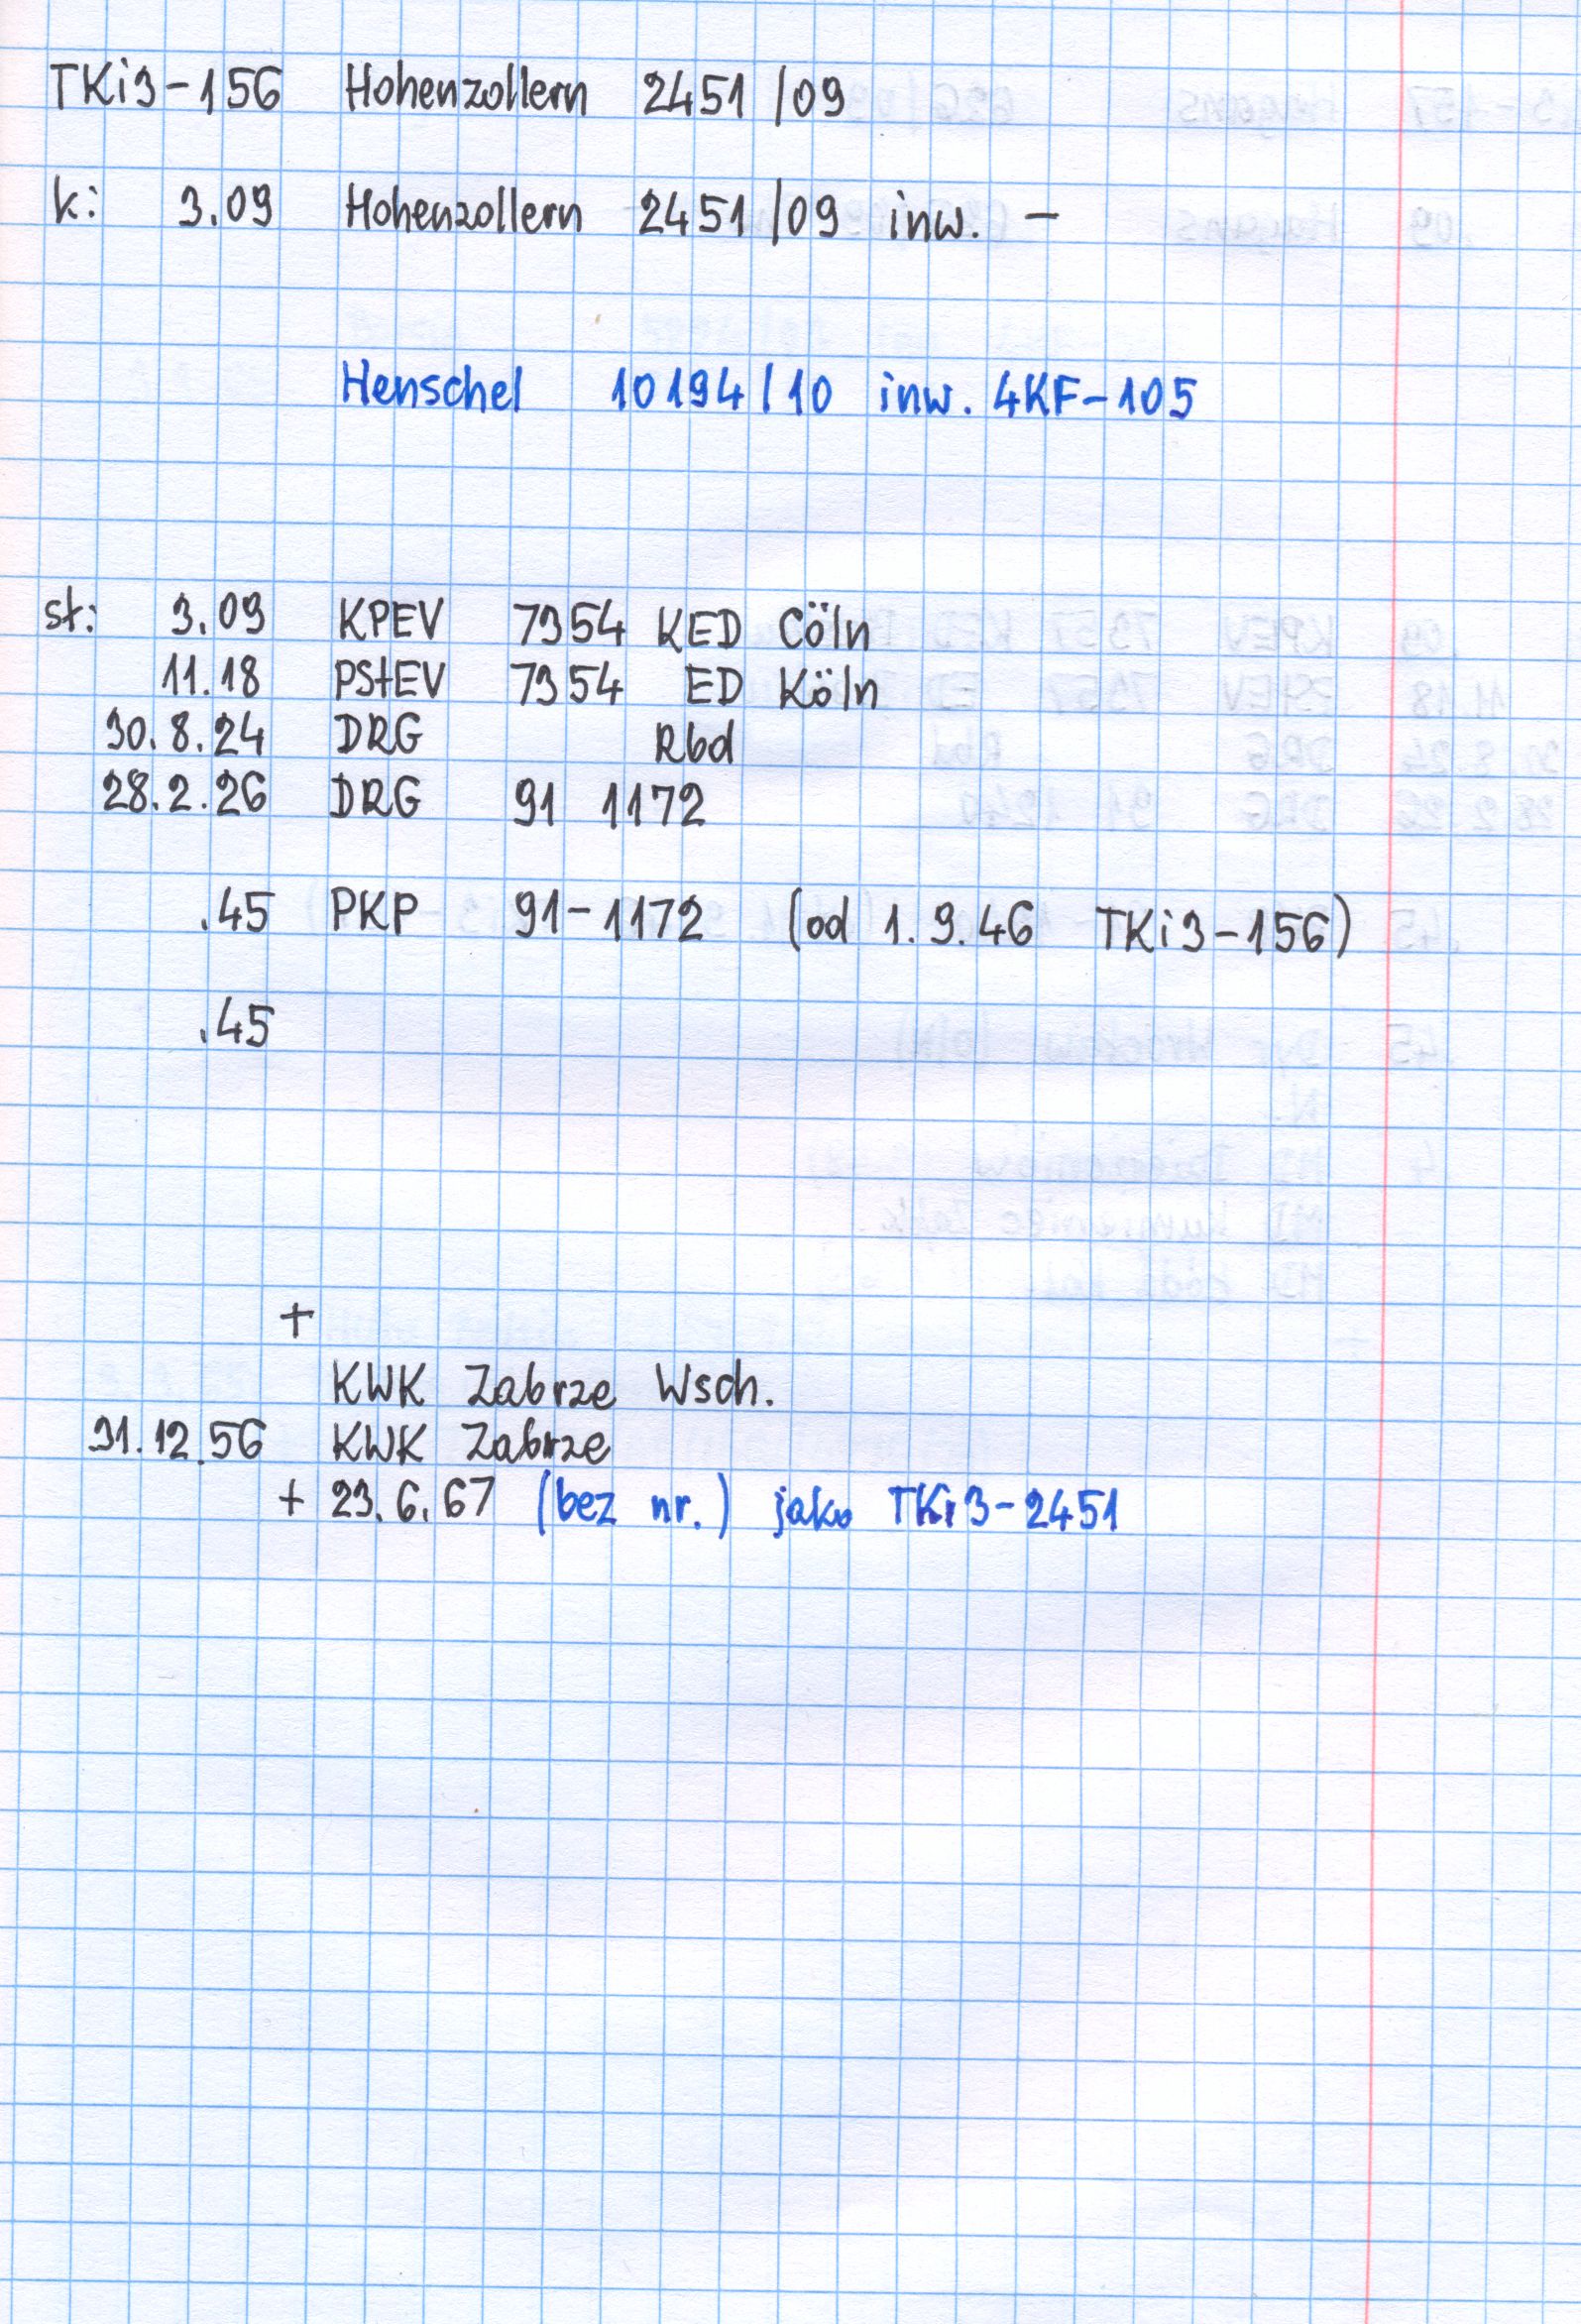 TKi3-156 Hohenzollern 2451/09
k: 3.09 Hohenzollern 2451/09 inw. -
Henschel 10194/10 inw. 4KF-105
st: 3.09 KPEV 7354 KED Cöln
11.18 PStEV 7354 ED Köln
30.8.24 DRG Rbd
28.2.26 DRG 91 1172
.45 PKP 91-1172 (od 1.9.46 TKi3-156)
.45
+
KWK Zabrze Wsch.
31.12.56 KWK Zabrze
+ 23.6.67 (bez nr.) jako TKi3-2451